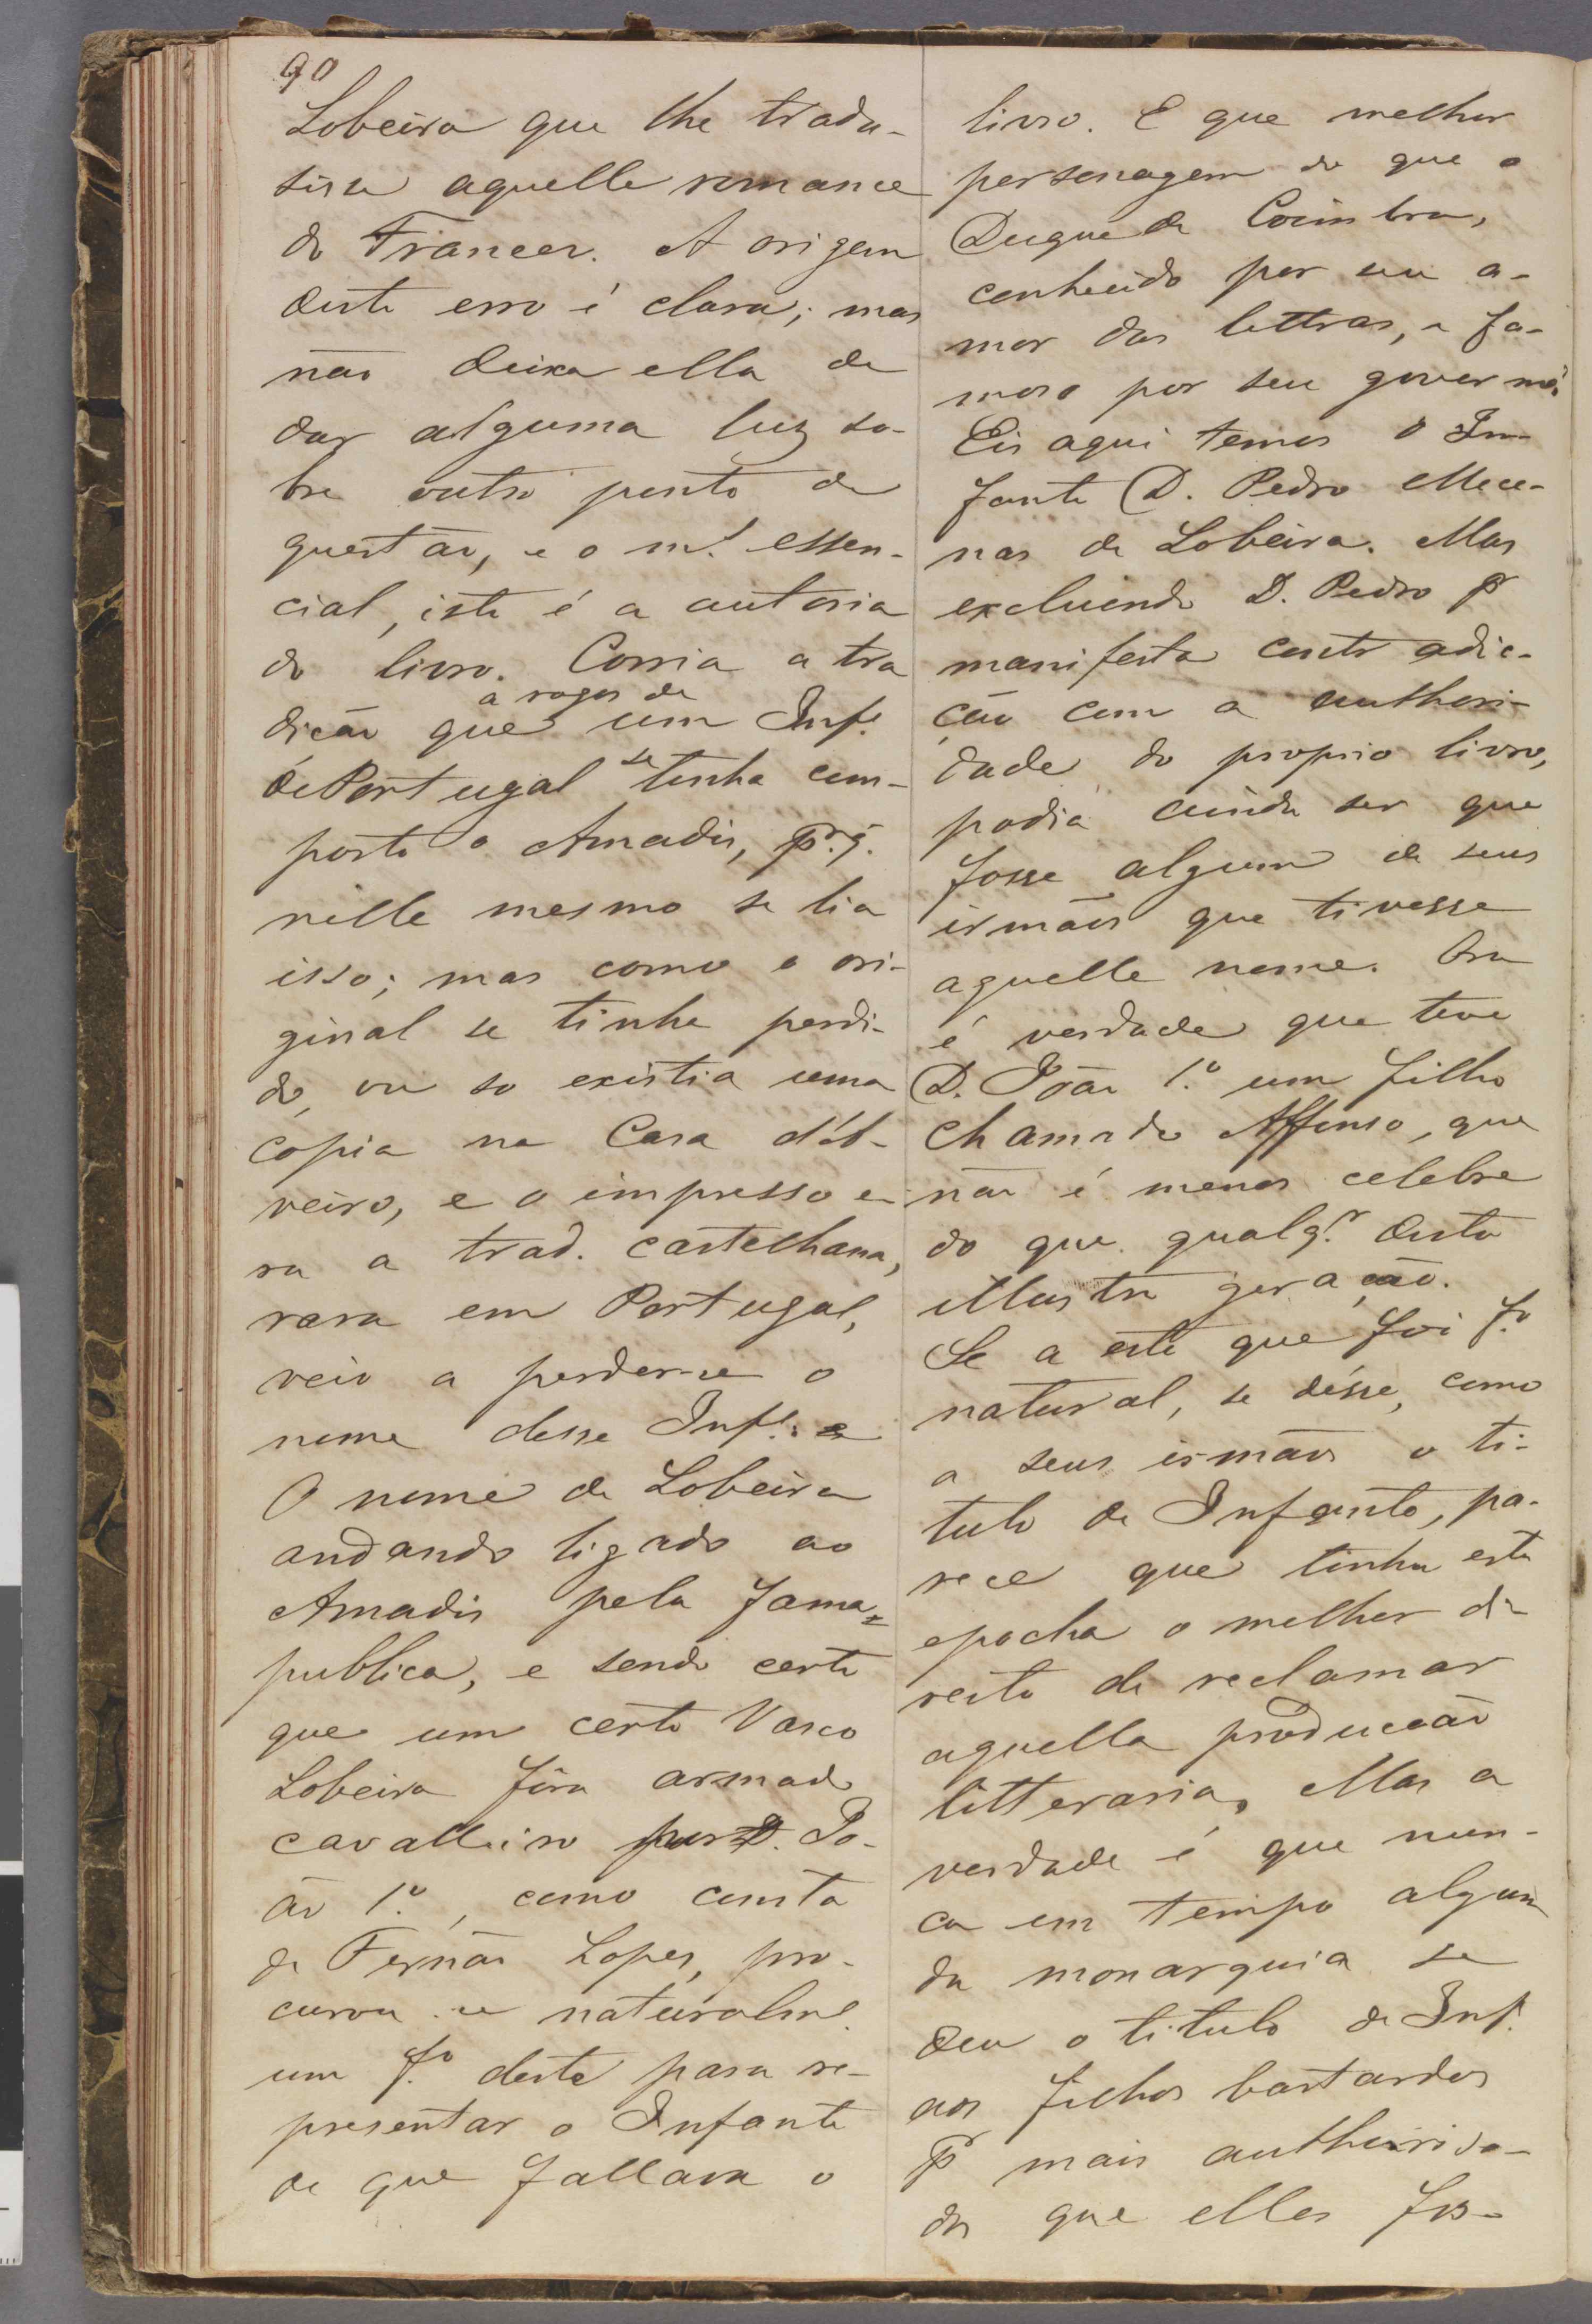 90
Lobeira que lhe tradu-
sisse aquelle romance
do Francez. A origem
deste erro é clara; mas
não deixa ella de
dar alguma luz so-
bre outro ponto da
questão, e o m.! essen-
cial, isto é a autoria
do livro. Corria a tra
dição que a rogos de um Inf.e
de Portugal se tinha com-
posto o Amadis, p.r q.
nelle mesmo se lia
isso; mas como o ori-
ginal se tinha perdi-
do, ou so existia uma
copia na Casa d'A-
veiro, e o impresso e-
ra a trad. castelhana,
rara em Portugal,
veio a perder-se o
nome desse Inf.e
O nome de Lobeira
andando ligado ao
Amadis pela fama
publica, e sendo certo
que um certo Vasco
Lobeira fôra armado
cavalleiro por D. Jo-
ão 1.º, como consta
de Fernão Lopes, pro-
curou-se naturalme.
um f.º deste para re-
presentar o Infante
de que fallava o
livro. E que melhor
personagem do que o
Duque de Coimbra,
conhecido por seu a-
mor das lettras, e fa-
moso por seu governo?
Eis aqui temos o In-
fante D. Pedro Mece-
nas de Lobeira. Mas
excluindo D. Pedro pr
manifesta contradic-
ção com a authori-
dade do proprio livro,
podia ainda ser que
fosse algum de seus
irmãos que tivesse
aquelle nome. Ora
é verdade que teve
D. João 1.º um filho
chamado Affonso, que
não é menos celebre
do que qualq.r desta
illustre geração.
Se a este que foi f.º
natural, se désse, como
a seus irmãos o ti-
tulo de Infante, pa-
rece que tinha esta
epocha o melhor di-
reito de reclamar
aquella producção
litteraria. Mas a
verdade é que nun-
ca em tempo algum
da monarquia se
deu o titulo de Inf.
aos filhos bastardos
pr mais authorisa-
dos que elles fos-